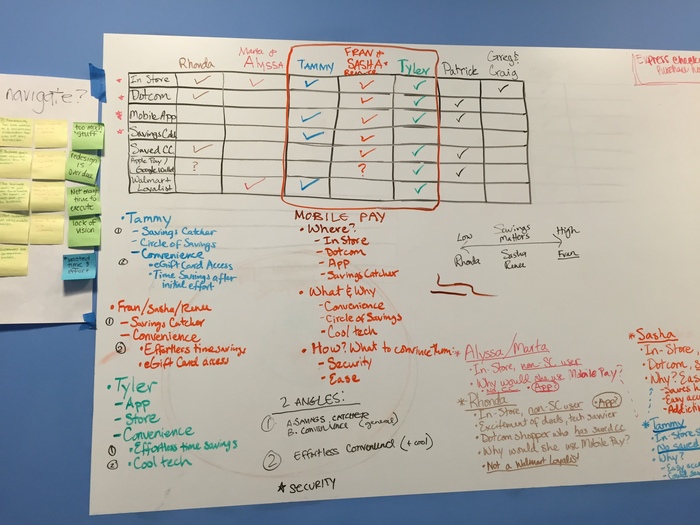 navigate?
too much stuff
Redesign is overdue
Not enough time to execute
lack of vision
wasted time & effort
Rhonda
Marta &
Alyssa
TAMMY
FRAN &
SASHA &
RENEE
Tyler
Patrick
Greg &
Craig
Express
In Store
Dotcom
Mobile App
Saved CC
Apple Pay /
Google Wallet
? ?
Walmart
Loyalist
• Tammy
① - Savings Catcher
- Circle of Savings
- Convenience
② • eGift Card Access
• Time Savings after
initial effort
• Fran/Sasha/Renee
① - Savings Catcher
- Convenience
② • Effortless time savings
• eGift Card access
• Tyler
- App
- Store
- Convenience
① • Effortless time savings
② • Cool tech
MOBILE PAY
• Where?
- In Store
- Dotcom
- App
- Savings Catcher
• What & Why
- Convenience
- Circle of Savings
- Cool tech
• How? What to convince them:
- Security
- Ease
2 ANGLES:
① A. SAVINGS CATCHER
B. CONVENIENCE (general)
② Effortless Convenience (+ cool)
* SECURITY
Low Savings matters High
Rhonda Sasha Renee Fran
* Alyssa/Marta
• In-Store, non-SC user
• Why would she use Mobile Pay?
• App?
* Rhonda
• In-Store, non-SC user • App?
• Excitement of deals, but savier
• Dotcom shopper who has saved cc
• Why would she use Mobile Pay?
• Not a Walmart Loyalist
* Sasha
• In-Store,
• Dotcom,
• Why?
* Tammy
• In-Store
• No saved
• Why?